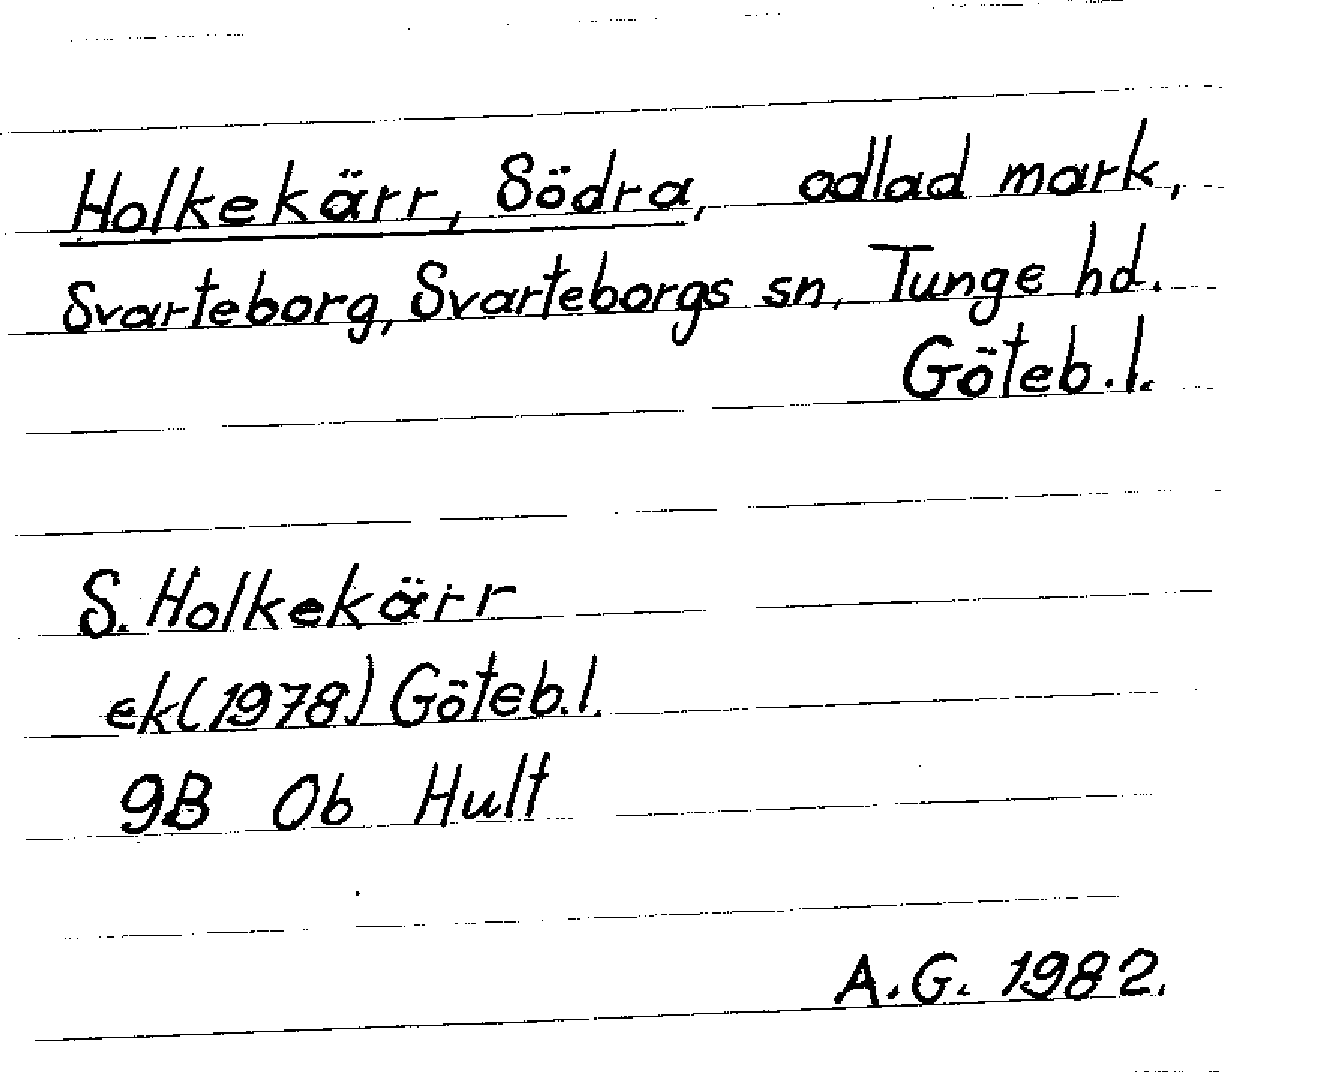 Holkekärr, Södra, odlad mark,
Svarteborg, Svarteborgs sn, Tunge hd.
Göteb.l.
S. Holkekärr
ek(1978) Göteb.l.
9B 0b Hult
A.G. 1982.